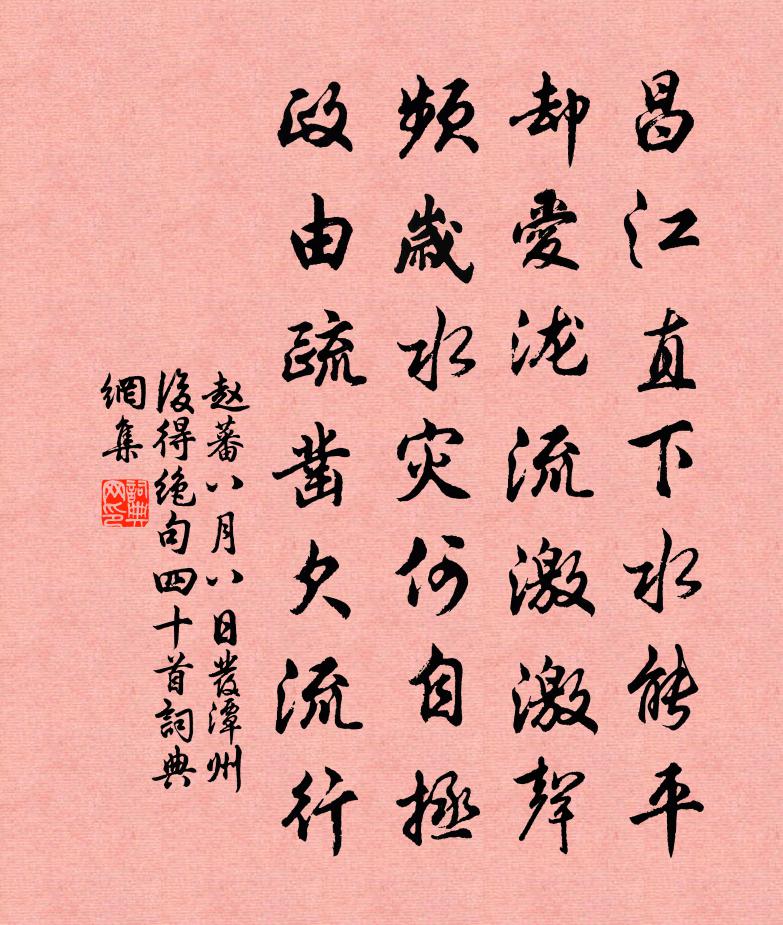 昌江直下水能平
却愛泷流激激聲
頻歲水灾何自拯
政由疏凿欠流行
赵蕃八月八日發潭州
後得绝句四十首詞典
網集
詞典網印